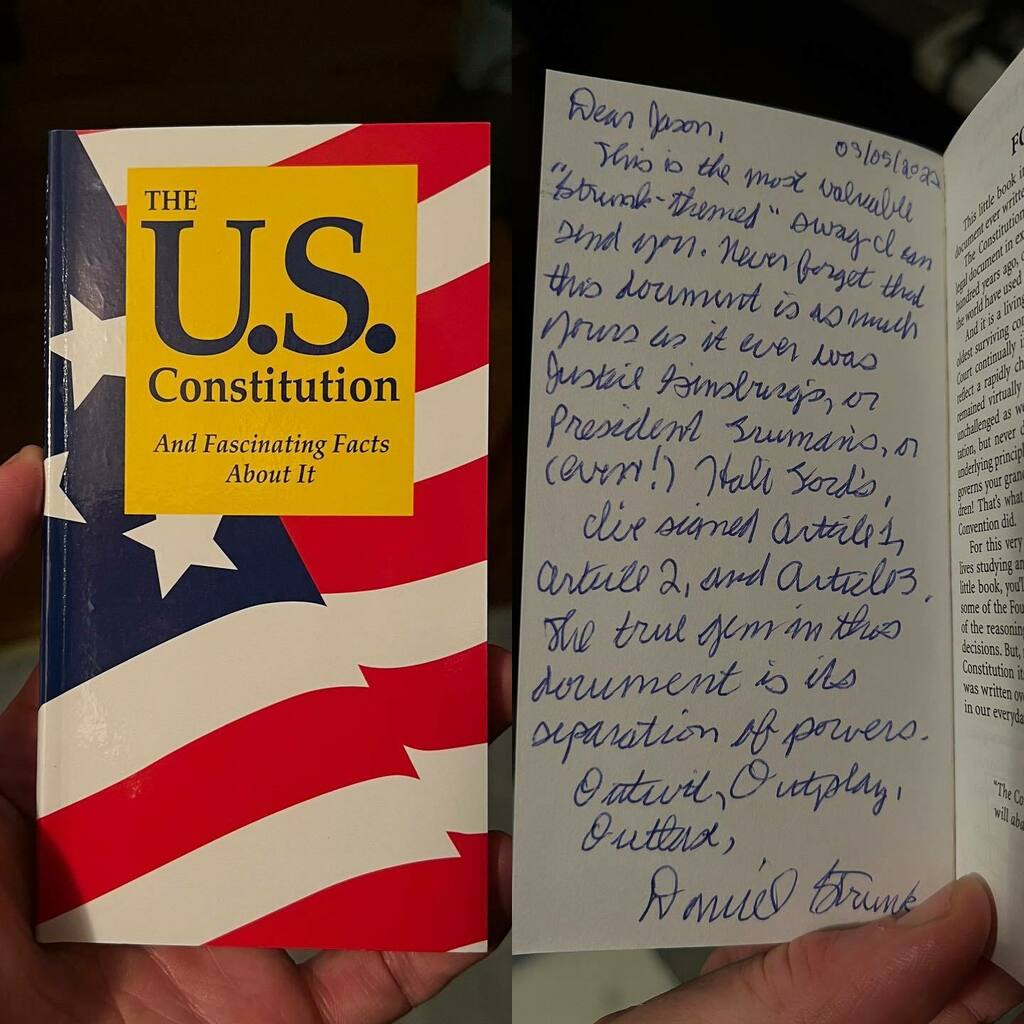 THE
U.S.
Constitution
And Fascinating Facts
About It
Dear Jason,
03/05/2022
This is the most valuable
"Strunk-themed" swag I can
send you. Never forget that
this document is as much
yours as it ever was
Justice Ginsburg's, or
President Truman's, or
(even!) Hall Ford's.
I've signed Article 1,
Article 2, and Article 3.
The true gem in this
document is its
separation of powers.
Outwit, Outplay,
Outlast,
Daniel Strunk
This little book
document ever
The Constitution
legal document in
hundred years ago,
the world have used
And it is a
oldest surviving
Court continually
reflect a rapidly
remained virtually
unchallenged as
but never
underlying
governs your
That's what
Convention did.
For this very
lives studying
little book,
some of the
of the
decisions. But,
Constitution
was written
in our
"The
will